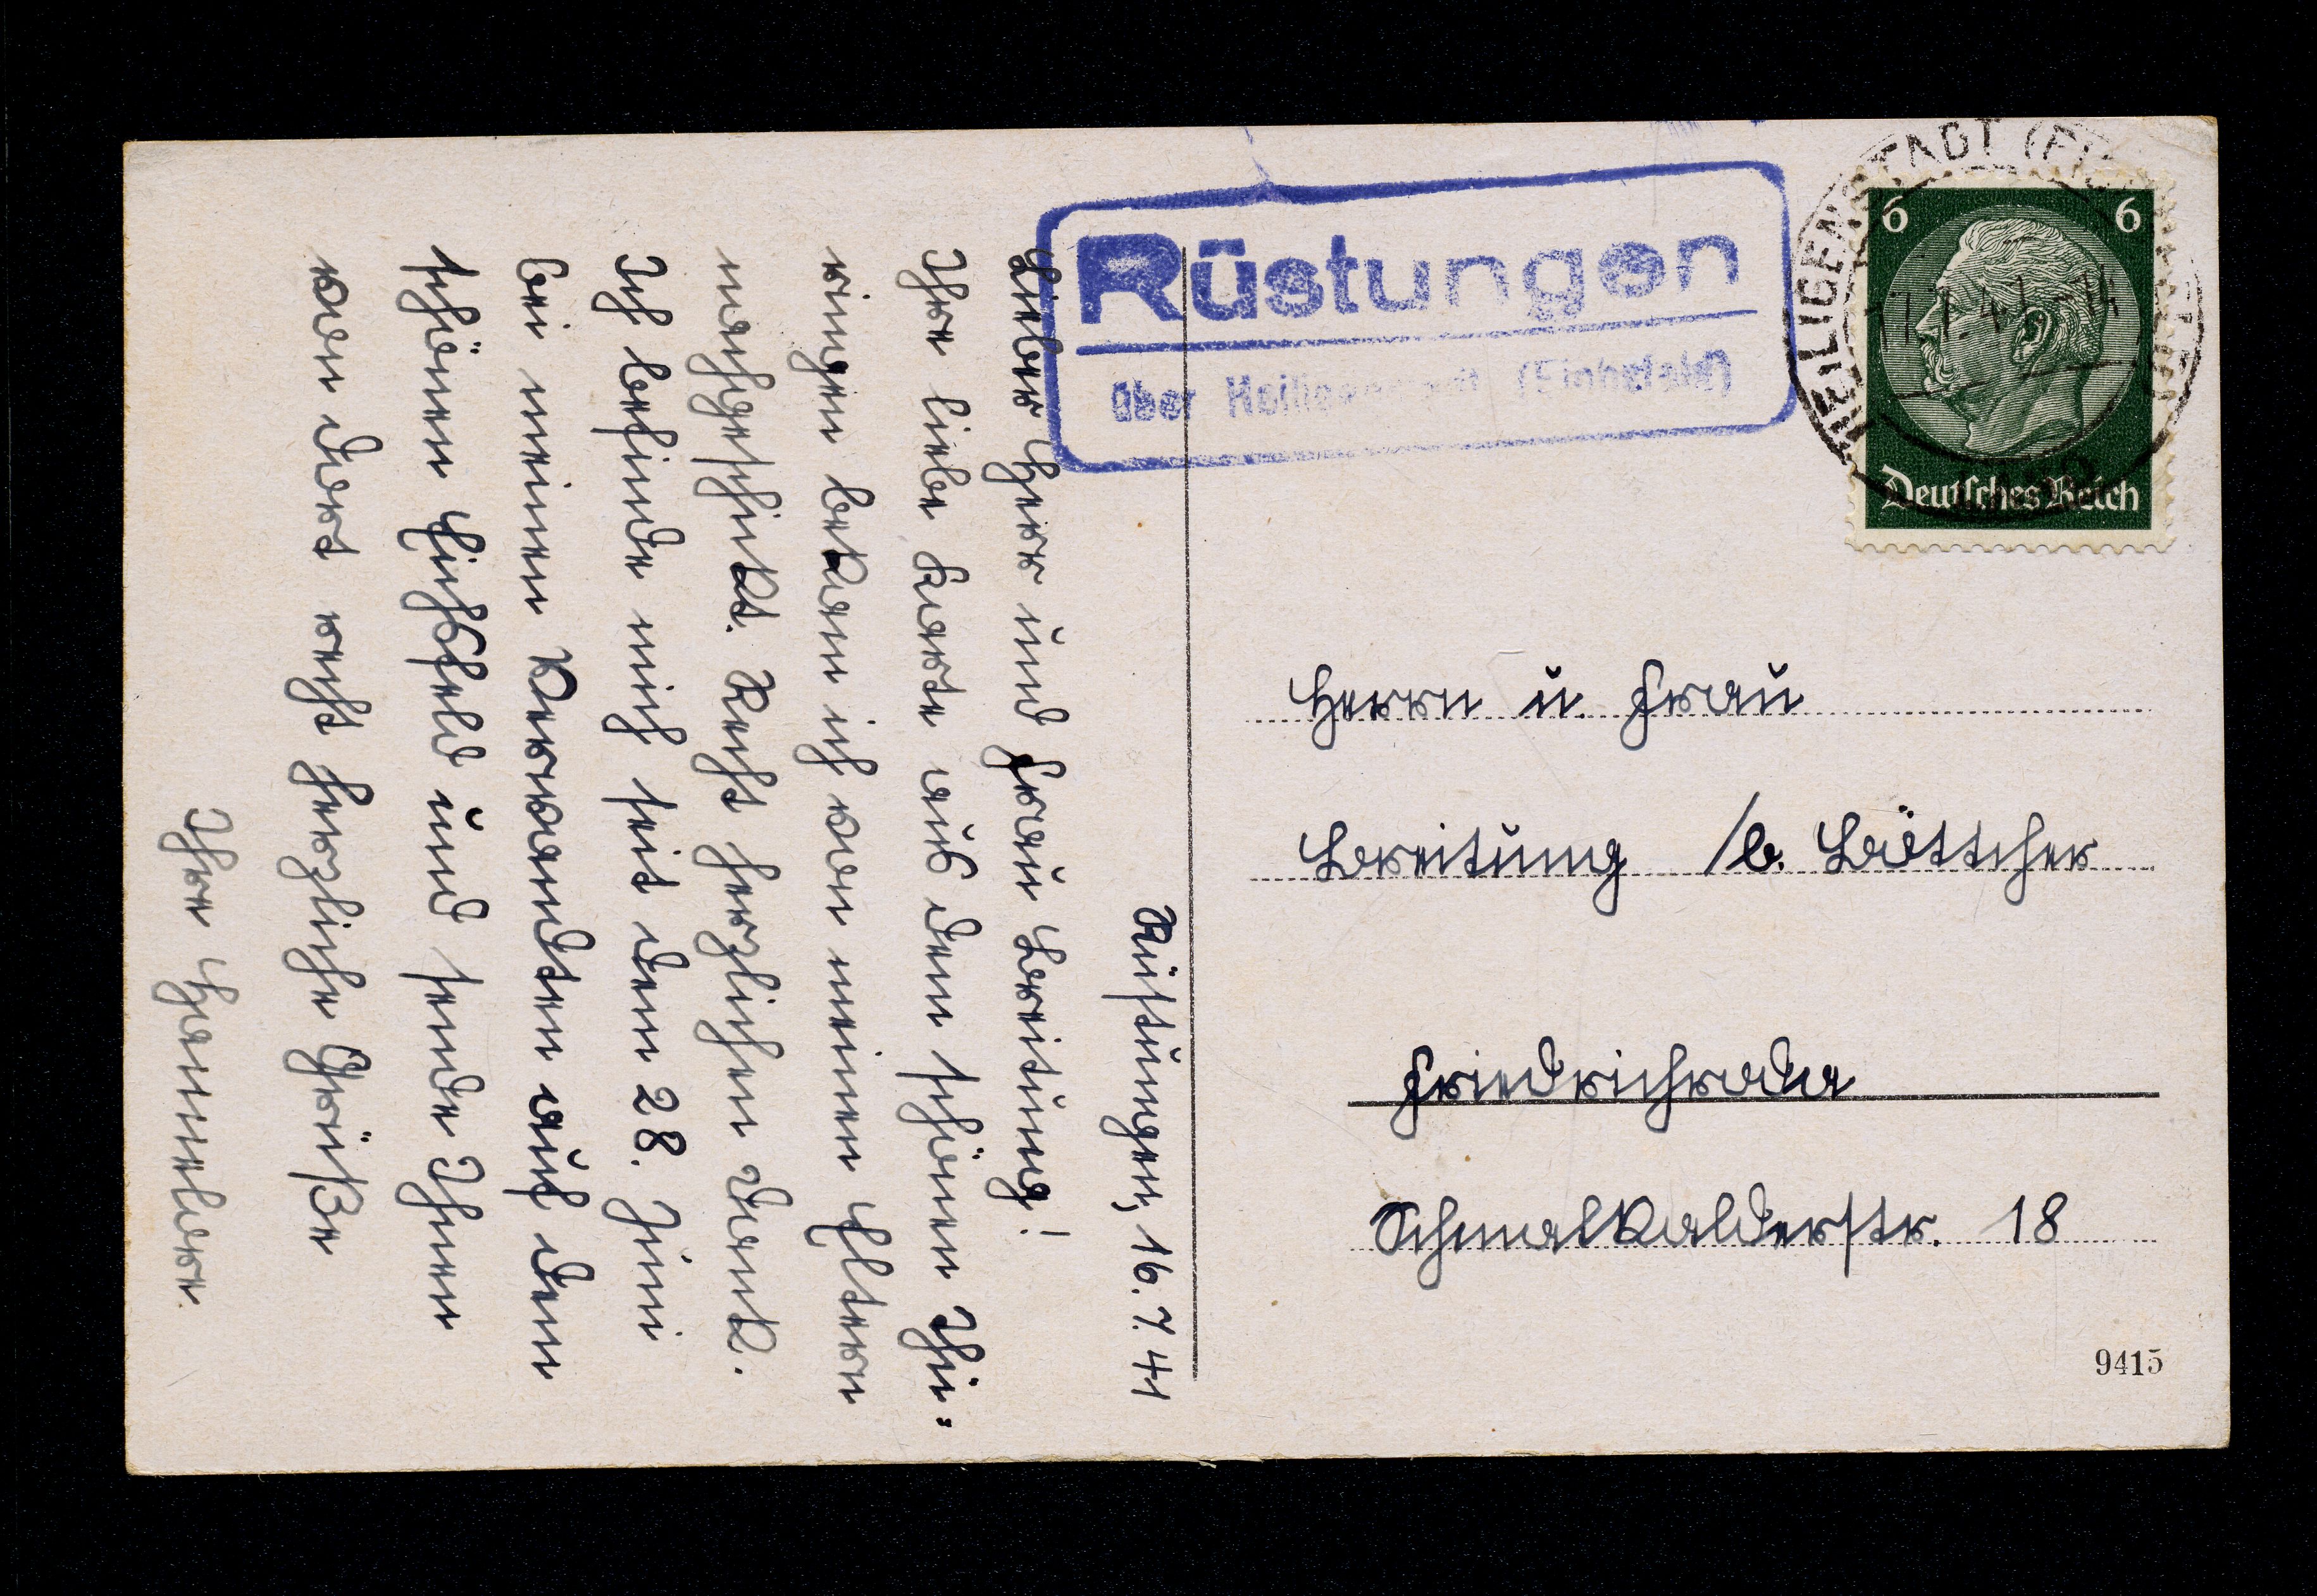 Rüstungen
über Heiligenstadt (Eichsfeld)
HEILIGENSTADT (EICHSFELD)
17.7.41-14
6 6
Deutsches Reich
Rüstungen, 16.7.41
Lieber Herr und Frau Breitung!
Ihre liebe Karte aus dem schönen Thü-
ringen bekam ich von meinen Eltern
nachgeschickt. Recht herzlichen Dank.
Ich befinde mich seit dem 28. Juni
bei meinen Verwandten auf dem
schönen Eichsfeld und sende Ihnen
von dort recht herzliche Grüße
Ihre
Herrn u. Frau
Breitung /b. Böttcher
Friedrichroda
Schmalkalderstr. 18
9415